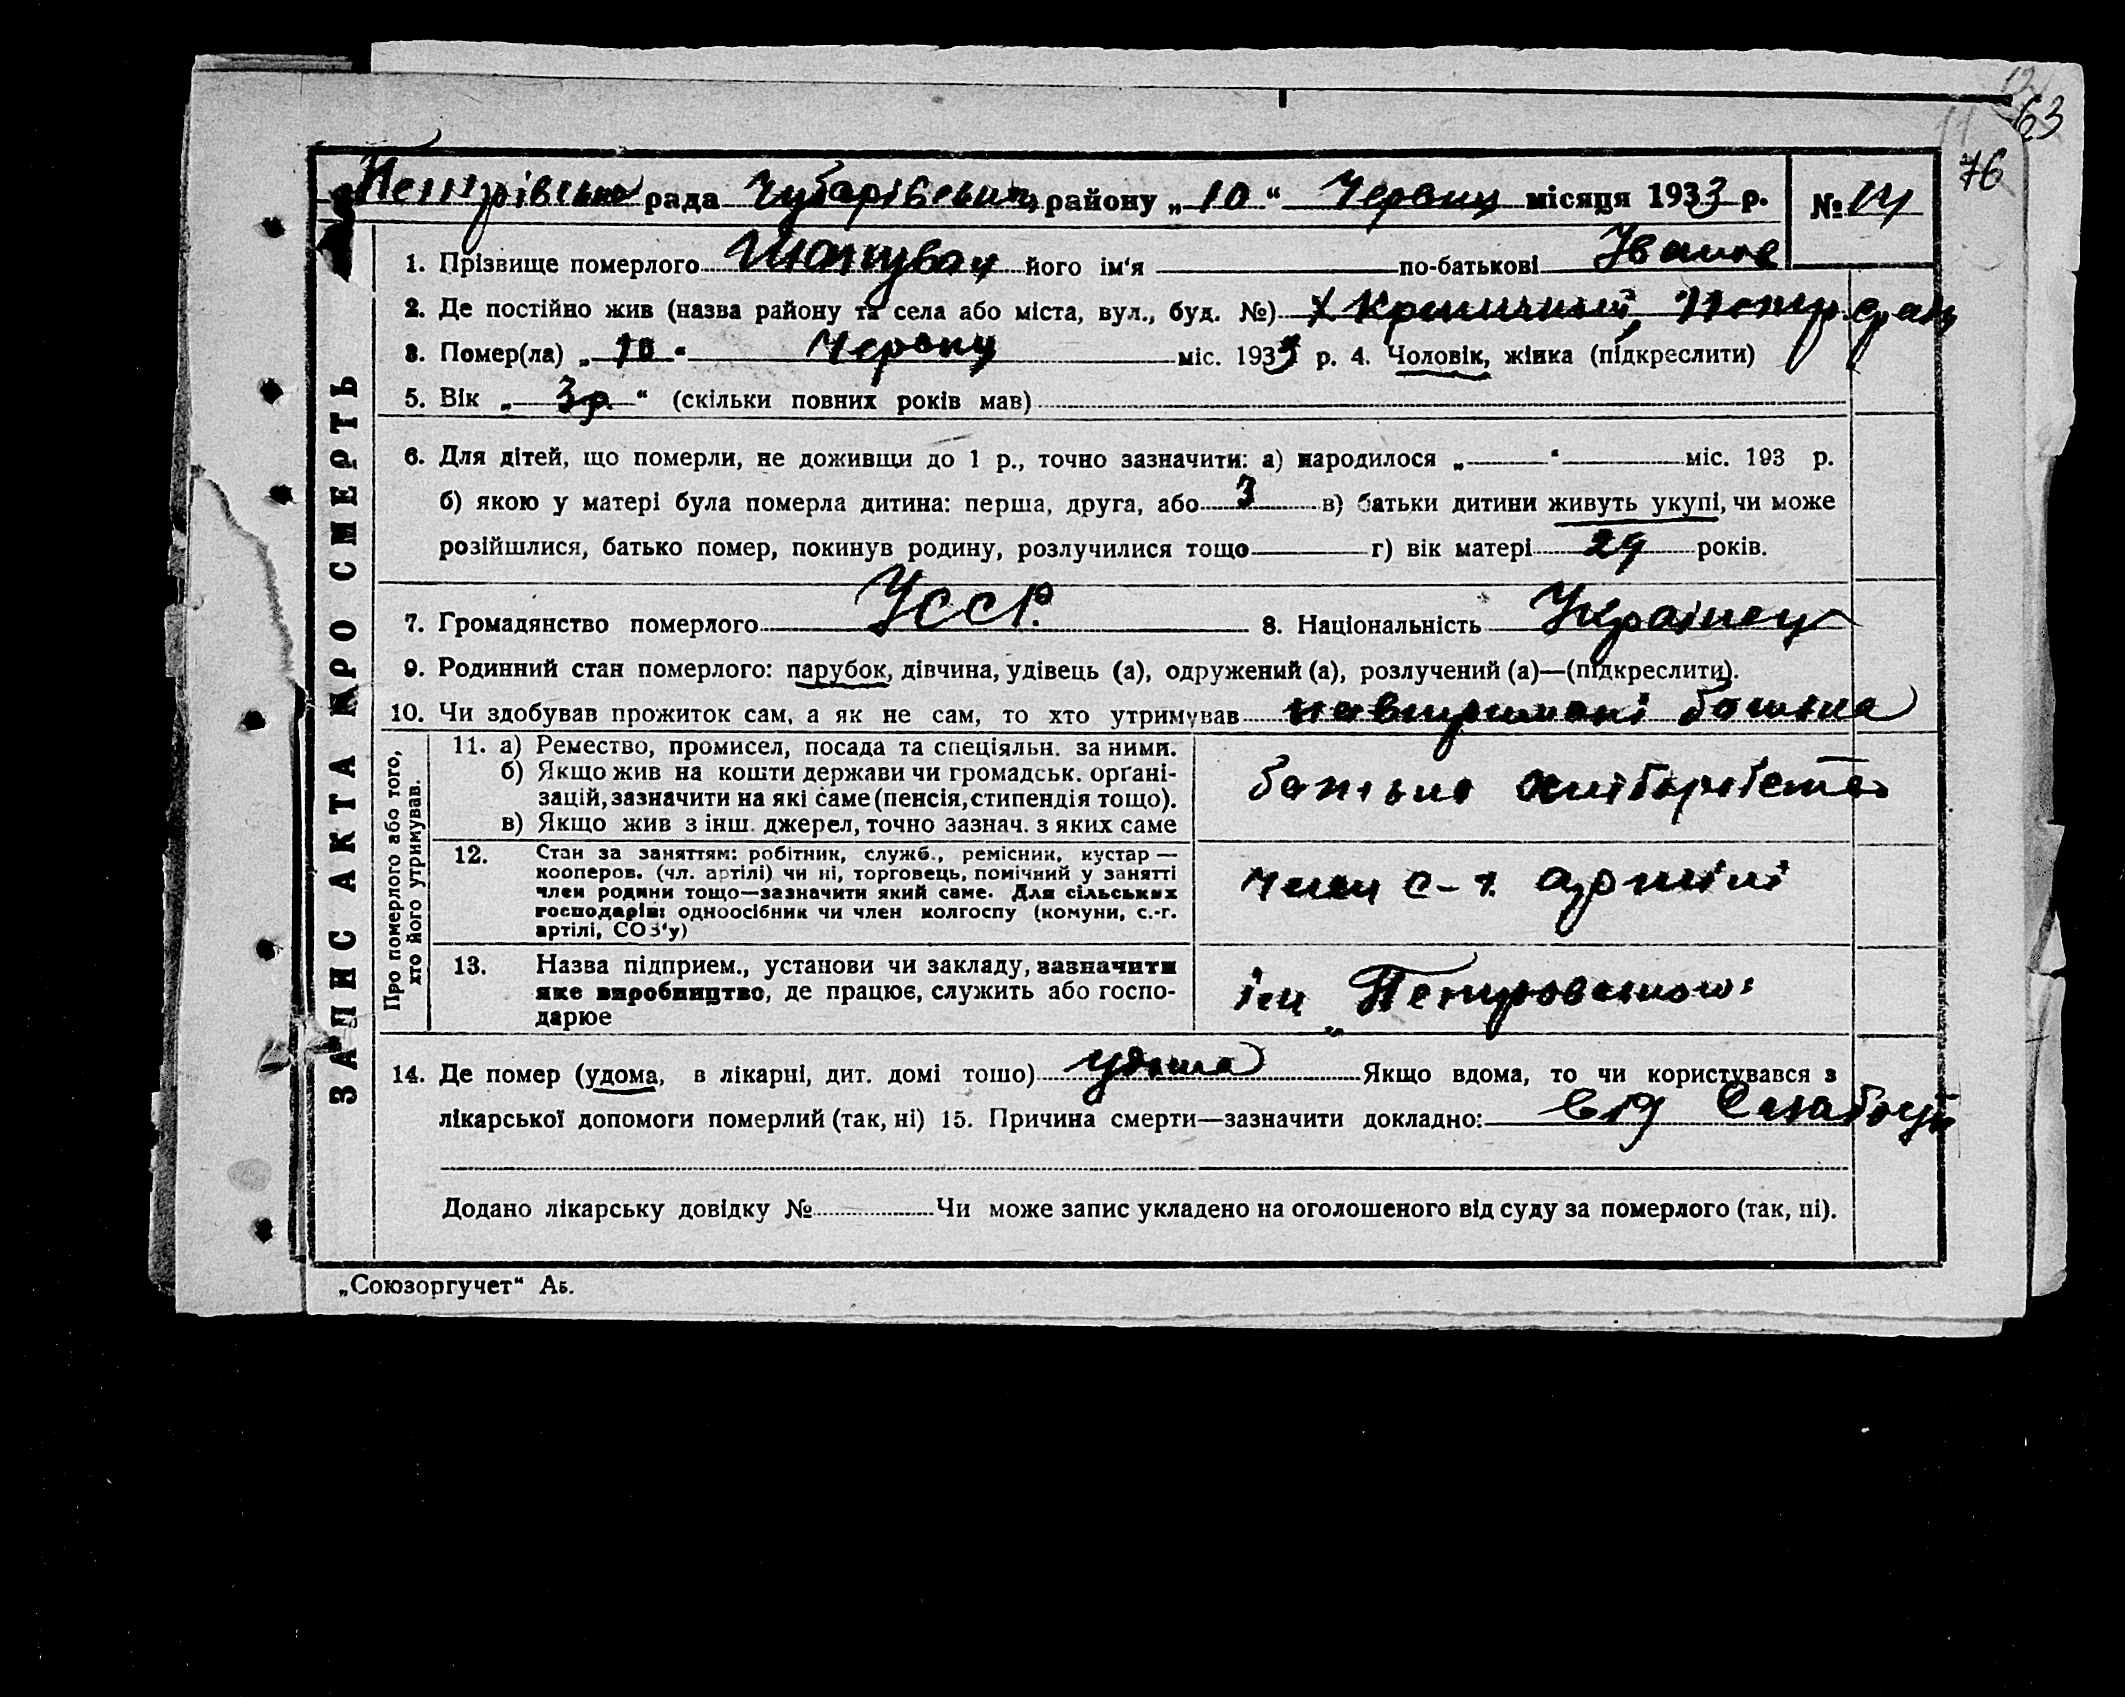 63
76
Петрівська рада Чубарівськ району „10“ Червня місяця 1933 р. № 14
ЗАПИС АКТА ПРО СМЕРТЬ
1. Прізвище померлого його ім'я по-батькові Іванов
2. Де постійно жив (назва району та села або міста, вул., буд. №) х Криничний, Петр.
3. Помер(ла) „10“ Червня міс. 1933 р. 4. Чоловік, жінка (підкреслити)
5. Вік „3 р.“ (скільки повних років мав)
6. Для дітей, що померли, не доживщи до 1 р., точно зазначити: а) народилося „ “ міс. 193 р.
б) якою у матері була померла дитина: перша, друга, або 3 в) батьки дитини живуть укупі, чи може
розійшлися, батько помер, покинув родину, розлучилися тощо г) вік матері 29 років.
7. Громадянство померлого УССР. 8. Національність Українец
9. Родинний стан померлого: парубок, дівчина, удівець (а), одружений (а), розлучений (а)—(підкреслити).
10. Чи здобував прожиток сам, а як не сам, то хто утримував на втриманні батька
Про померлого або того,
хто його утримував.
11. а) Ремество, промисел, посада та спеціяльн. за ними.
б) Якщо жив на кошти держави чи громадськ. орґані-
зацій, зазначити на які саме (пенсія, стипендія тощо).
в) Якщо жив з інш. джерел, точно зазнач. з яких саме
батько хлібороб
12. Стан за заняттям: робітник, служб., ремісник, кустар —
кооперов. (чл. артілі) чи ні, торговець, помічний у занятті
член родини тощо—зазначити який саме. Для сільських
господарів: одноосібник чи член колгоспу (комуни, с.-г.
артілі, СОЗ'у)
член с-г. артілі
13. Назва підприєм., установи чи закладу, зазначити
яке виробництво, де працює, служить або госпо-
дарює
ім „Петровського"
14. Де помер (удома, в лікарні, дит. домі тощо) удома Якщо вдома, то чи користувався з
лікарської допомоги померлий (так, ні) 15. Причина смерти—зазначити докладно: від
Додано лікарську довідку № Чи може запис укладено на оголошеного від суду за померлого (так, ні).
„Союзоргучет“ Аь.